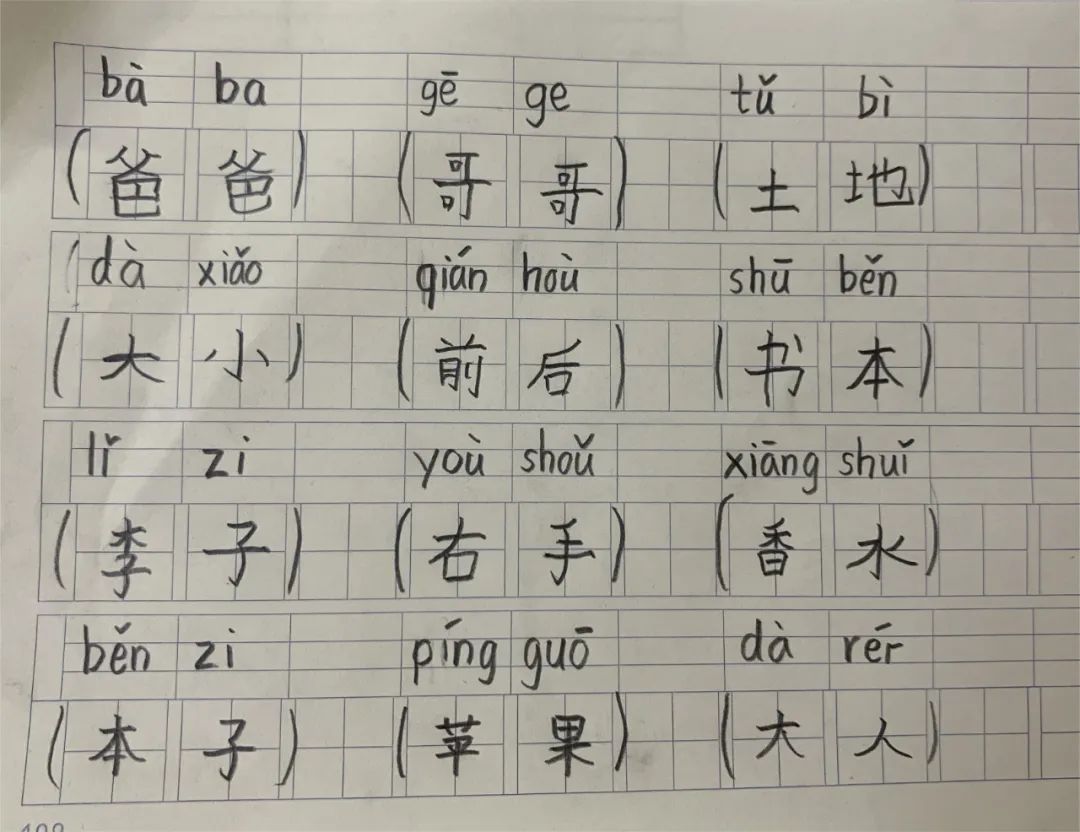 bà ba gē ge tǔ bì
(爸爸) (哥哥) (土地)
dà xiǎo qián hoù shū běn
(大小) (前后) (书本)
lǐ zi yoù shoǔ xiāng shuǐ
(李子) (右手) (香水)
běn zi píng guō dà rér
(本子) (苹果) (大人)